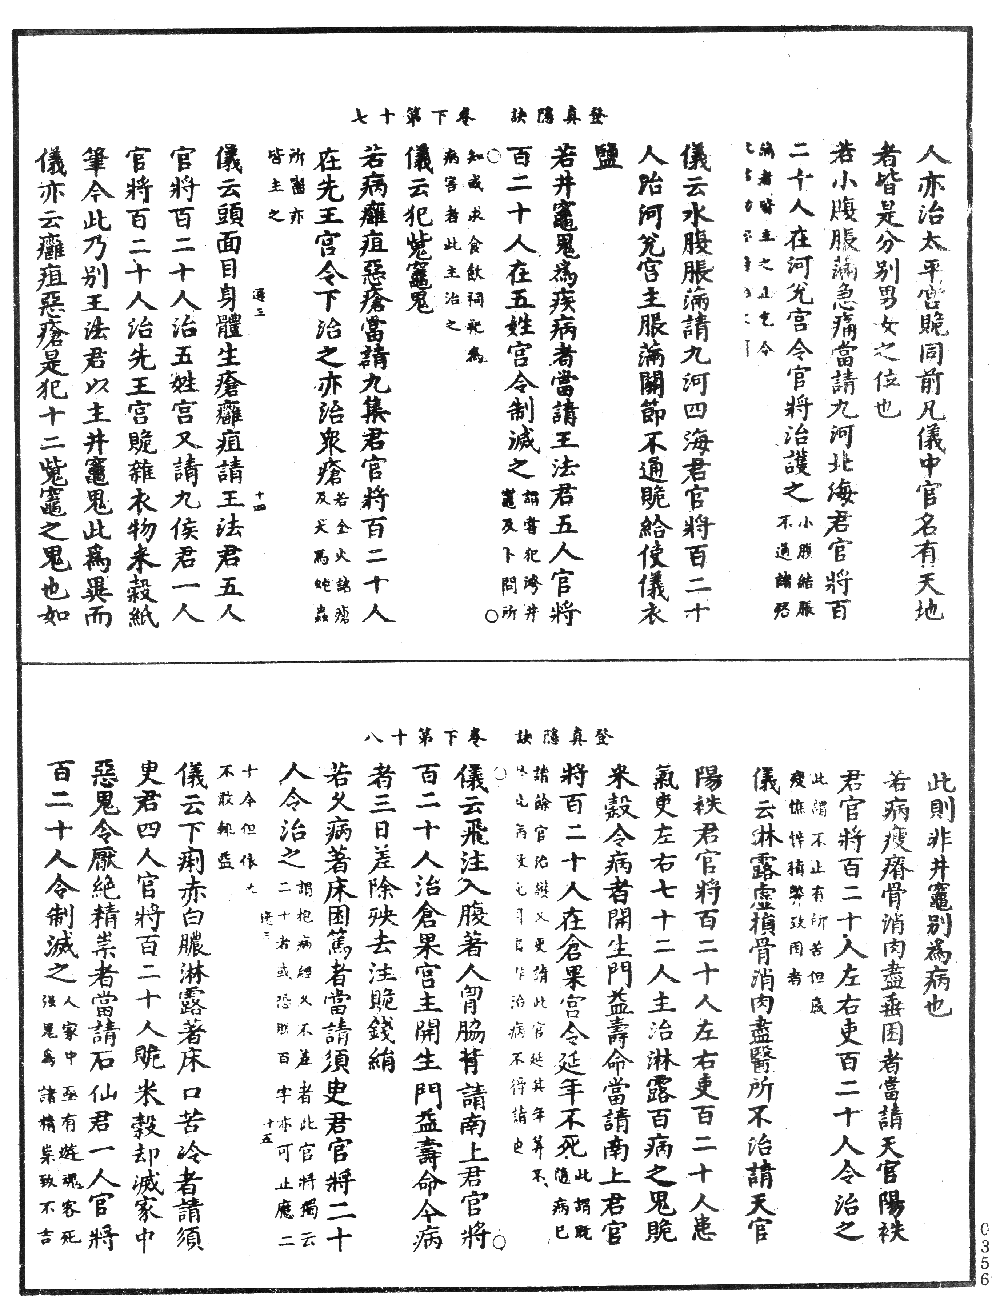 登真隱訣　卷下第十七
人亦治太平宮賧同前凡儀中官名有天地
者皆是分別男女之位也
若小腹脹滿急痛當請九河北海君官將百
二十人在河兊宮令官將治護之小腹結脹
不通諸
滿者皆主之止乞令
儀云水腹脹滿請九河四海君官將百二十
人治河兊宮主脹滿關節不通賧給使儀衣
鹽
若井竈鬼為疾病者當請王法君五人官將
百二十人在五姓宮令制滅之謂嘗犯滯井
竈及卜問所
知或求食飲祠祀為
病害者此主治之
儀云犯𤯝竈鬼
若病癰疽惡瘡當請九集君官將百二十人
在先王宮令下治之亦治眾瘡若金火諸瘡
及犬馬蛇蟲
所齧亦
皆主之
遜三　十四
儀云頭面目身體生瘡癰疽請王法君五人
官將百二十人治五姓宮又請九侯君一人
官將百二十人治先王宮賧雜衣物米穀紙
筆今此乃別王法君以主井竈鬼此為異而
儀亦云癰疽惡瘡是犯十二𤯝竈之鬼也如
登真隱訣　卷下第十八
此則非井竈別為病也
若病瘦瘠骨消肉盡垂困者當請天官陽袟
君官將百二十人左右吏百二十人令治之
此謂不止有所苦但處
瘦憔悴積弊致困者
儀云淋露虛損骨消肉盡醫所不治請天官
陽袟君官將百二十人左右吏百二十人患
氣吏左右七十二人主治淋露百病之鬼賧
米穀令病者開生門益壽命當請南上君官
將百二十人在倉果宮令延年不死此謂既
隨病已
請餘官治救又更請此官延其年筭不
治病不得請也
儀云飛注入腹著人胷脇背請南上君官將
百二十人治倉果宮主開生門益壽命令病
者三日差除殃去注賧錢絹
若久病著床困篤者當請須史君官將二十
人令治之謂抱病經久不差者此官將獨云
二十者或恐脫百字亦可止應二
十今但依
不敢輒益
十五
儀云下痢赤白膿淋露著床口苦冷者請須
史君四人官將百二十人賧米穀却滅家中
惡鬼令厭絕精祟者當請石仙君一人官將
百二十人令制滅之人家中亟有遊魂客死
強鬼為諸精祟致不吉
0356